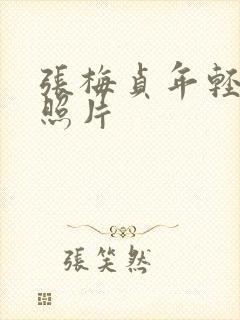 張梅貞年輕
照片
張笑然